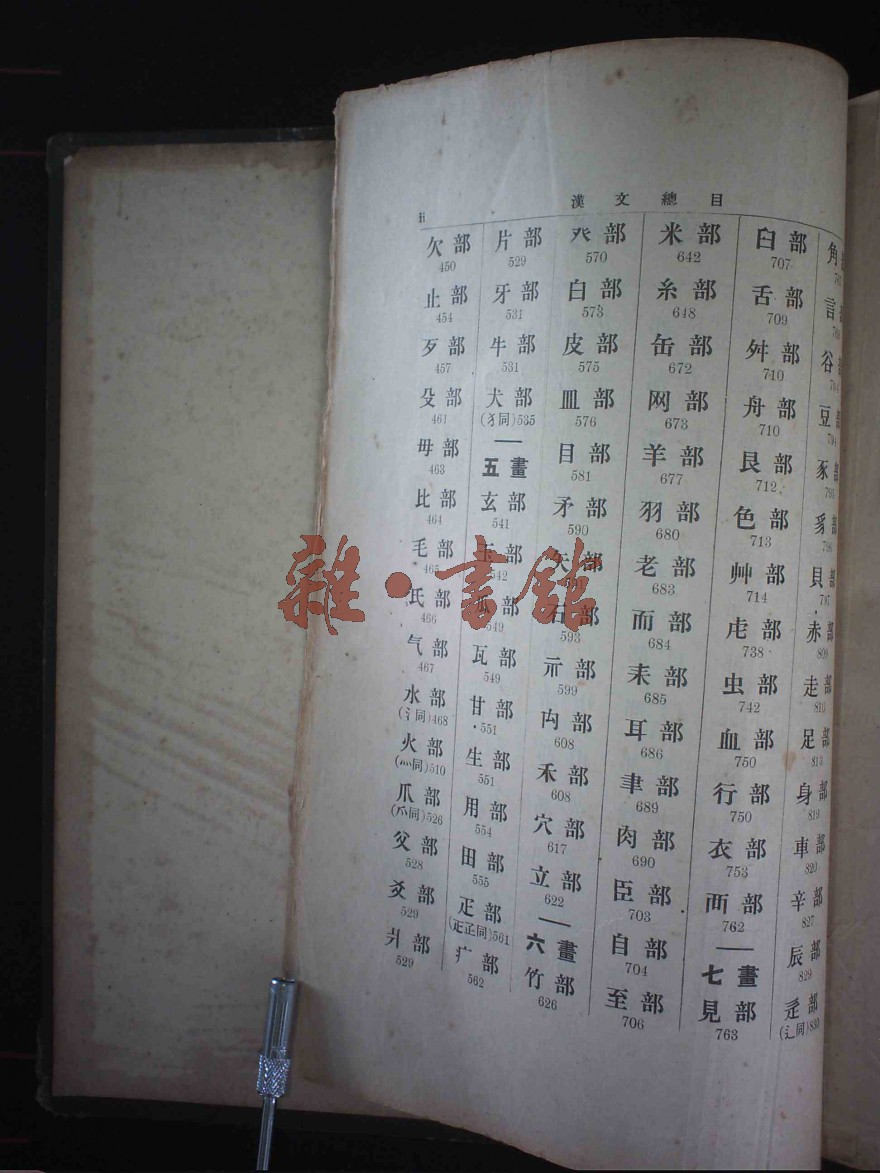 漢文總目
ii
欠部
450
止部
454
歹部
457
殳部
461
毋部
463
比部
464
毛部
465
氏部
466
气部
467
水部
(氵同)468
火部
(灬同)510
爪部
(爫同)526
父部
528
爻部
529
爿部
529
片部
529
牙部
531
牛部
531
犬部
(犭同)535
五畫
玄部
541
玉部
542
瓜部
549
瓦部
549
甘部
551
生部
551
用部
554
田部
555
疋部
561
疒部
562
癶部
570
白部
573
皮部
575
皿部
576
目部
581
矛部
590
矢部
石部
593
示部
599
禸部
608
禾部
608
穴部
617
立部
622
六畫
竹部
626
米部
642
糸部
648
缶部
672
网部
673
羊部
677
羽部
680
老部
683
而部
684
耒部
685
耳部
686
聿部
689
肉部
690
臣部
703
自部
704
至部
706
臼部
707
舌部
709
舛部
710
舟部
710
艮部
712
色部
713
艸部
714
虍部
738
虫部
742
血部
750
行部
750
衣部
753
襾部
762
七畫
見部
763
角
言
谷
豆部
豕部
豸部
貝部
赤部
走部
足部
身部
819
車部
820
辛部
827
辰部
829
辵部
(辶同)830
雜·書館